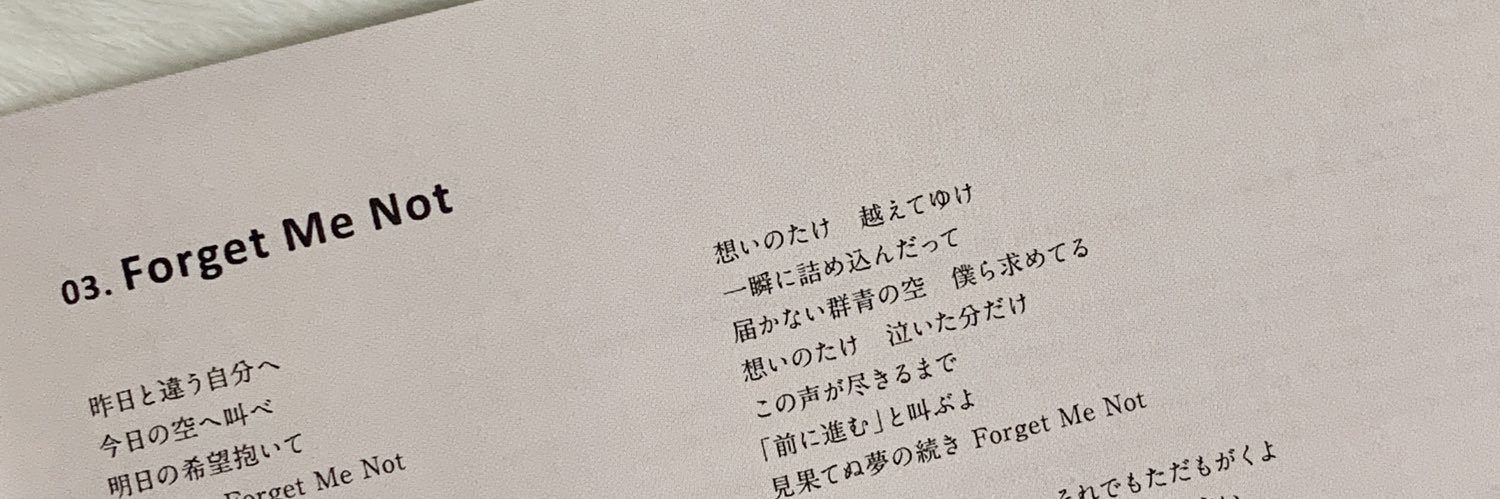 03. Forget Me Not
昨日と違う自分へ
今日の空へ叫べ
明日の希望抱いて
Forget Me Not
想いのたけ　越えてゆけ
一瞬に詰め込んだって
届かない群青の空　僕ら求めてる
想いのたけ　泣いた分だけ
この声が尽きるまで
「前に進む」と叫ぶよ
見果てぬ夢の続き Forget Me Not
それでもただもがくよ